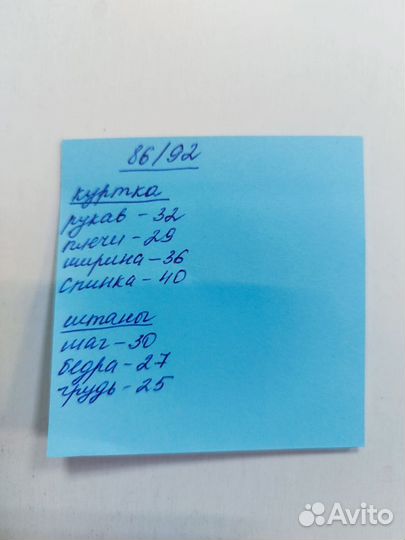 86/92
куртка
рукав - 32
плечи - 29
ширина - 36
спинка - 40
штаны
шаг - 30
бедра - 27
грудь - 25
Avito